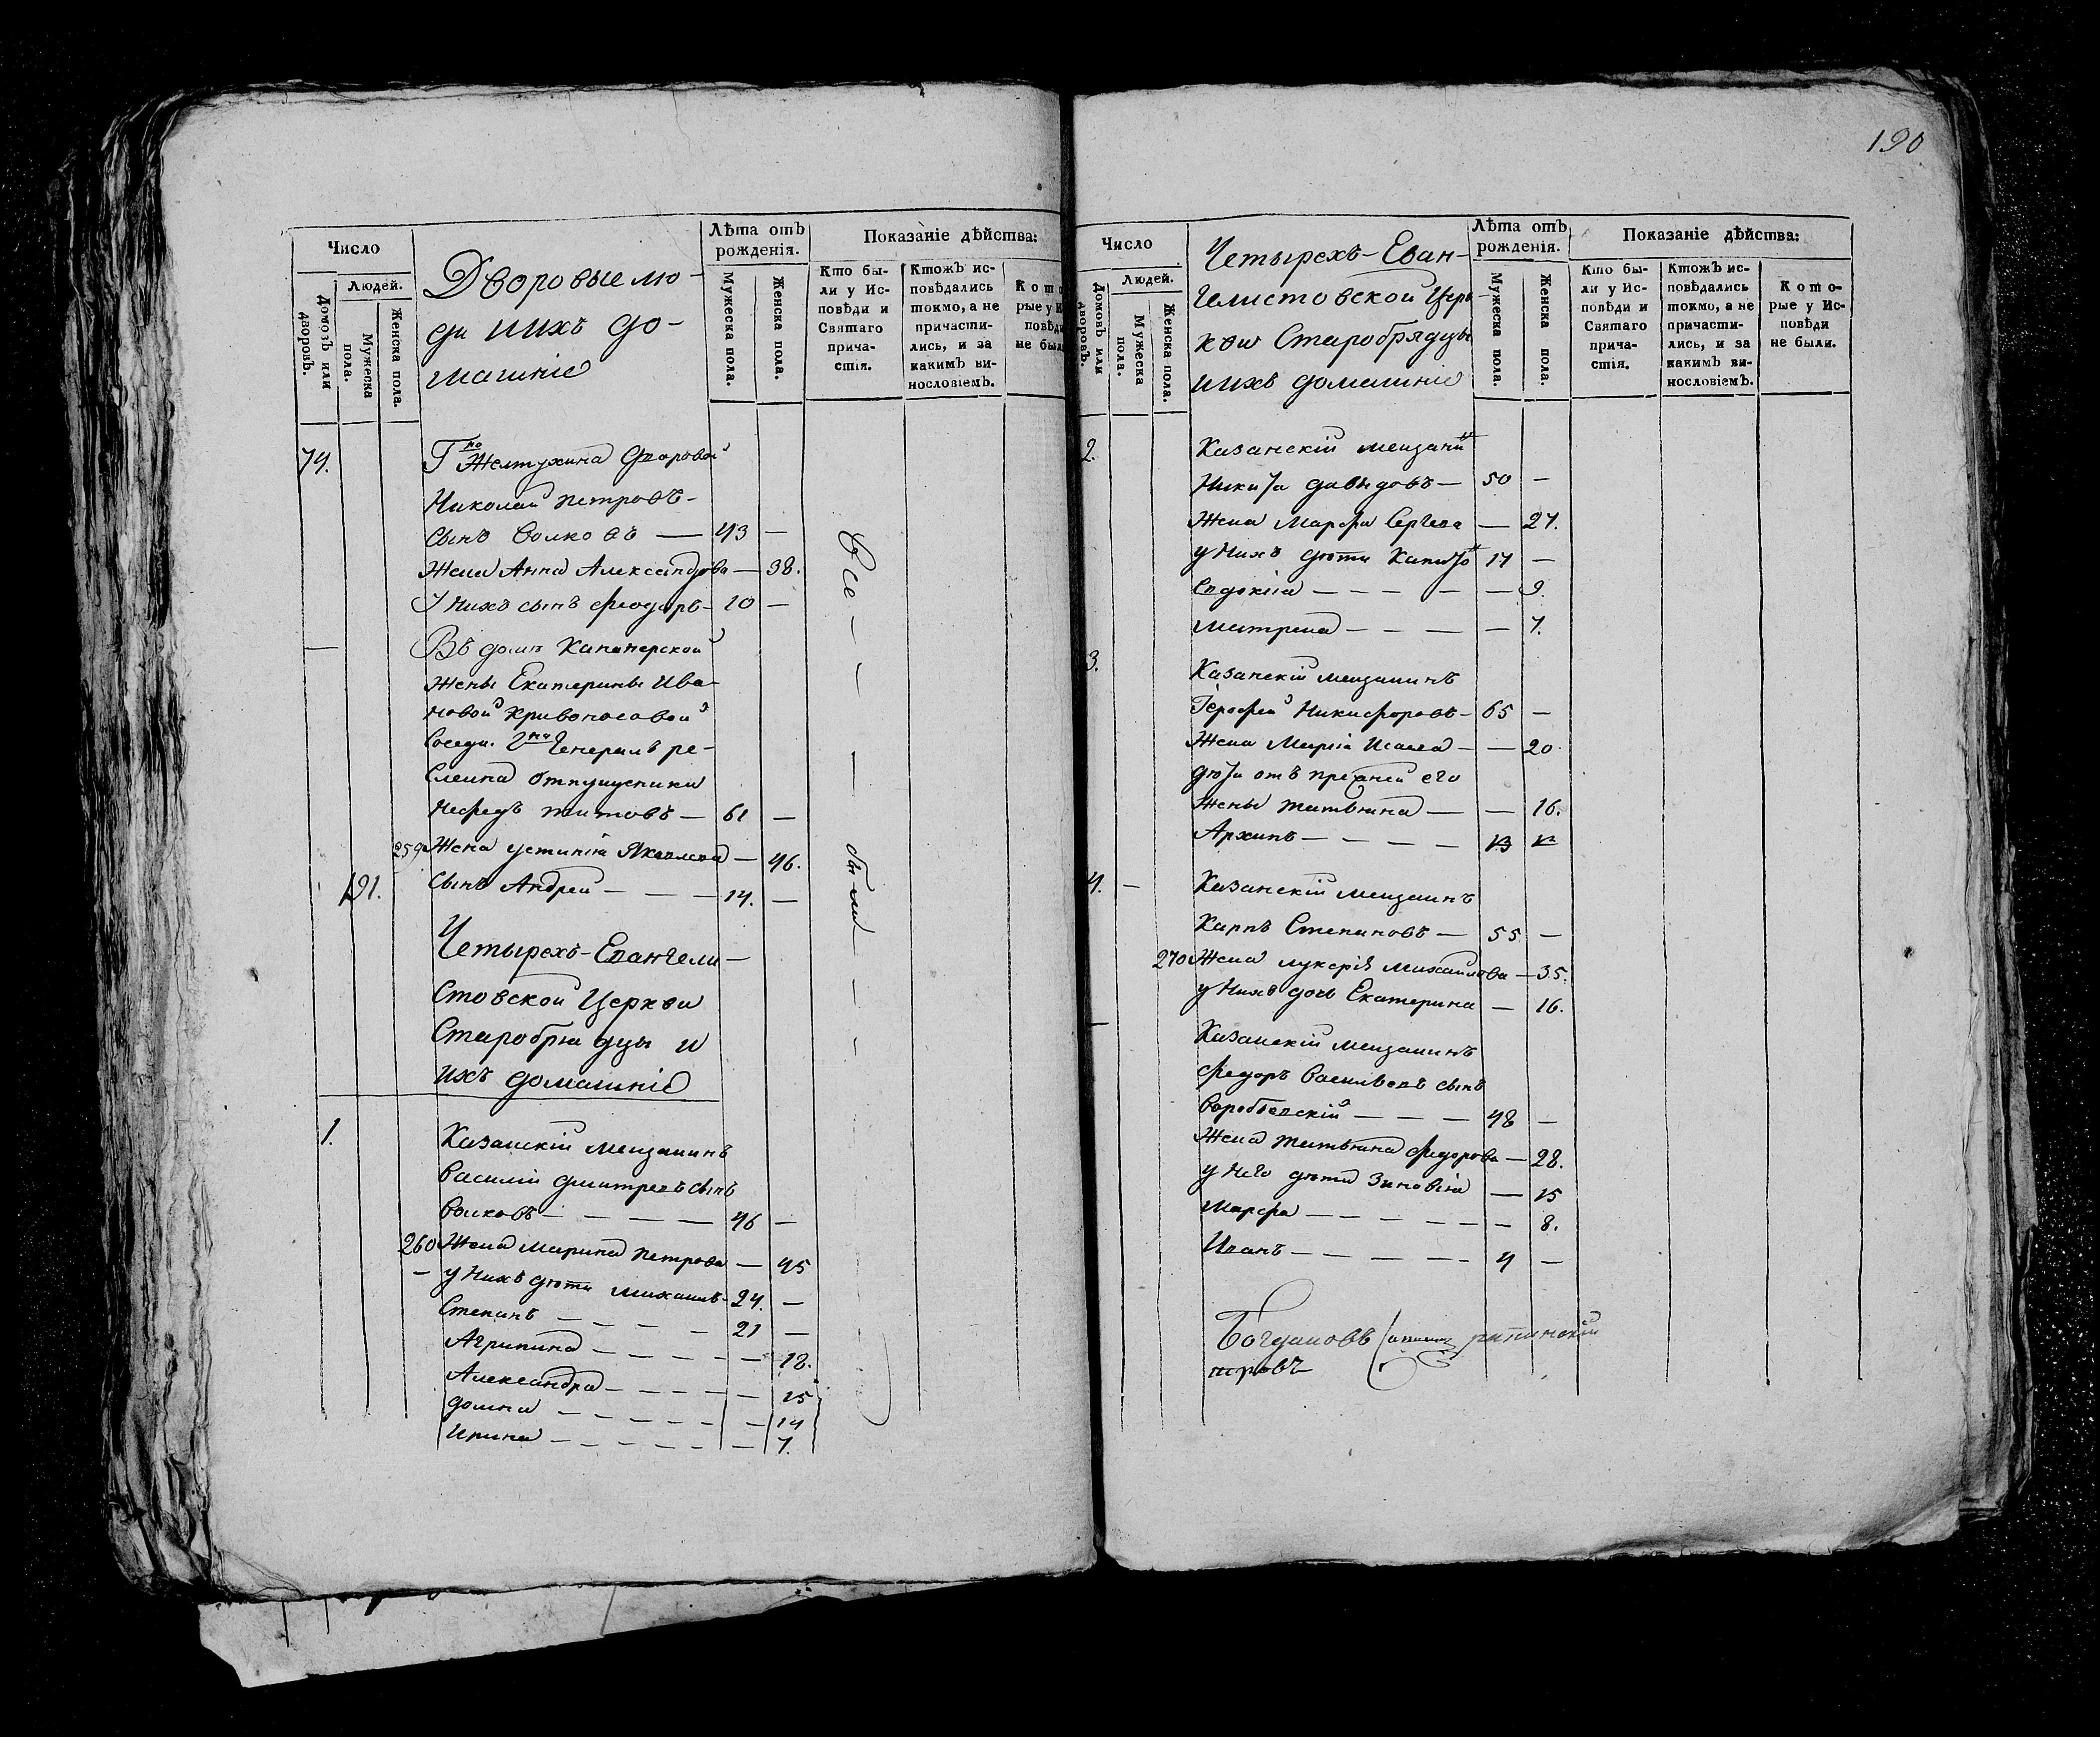 190
Число
Людей.
Домовъ или дворовъ.
Мужеска пола.
Женска пола.
Дворовые лю-
ди и ихъ до-
машніе
Лѣта отъ рожденія.
Мужеска пола.
Женска пола.
Показаніе дѣйства:
Кто бы-
ли у Ис-
повѣди и
Святаго
прича-
стія.
Ктожъ ис-
повѣдались
токмо, а не
причасти-
лись, и за
какимъ ви-
нословіемъ.
Кото
рые у И
повѣди
не был
74. Гна Желтухина дворовой
Николай Петровъ
сынъ Волковъ — 43 —
Жена Анна Александрова — 38.
У нихъ сынъ Феодоръ — 10 —
— Въ домѣ
жены Екатерины Ива-
новой Кривоносовой
Гна Генералъ
отпущеники
Титовъ — 61 —
259 Жена Устинія Яковлева — 46.
191. сынъ Андрей — 14. —
Все — были
Четырехъ-Евангели-
стовской Церкви
Старобрядцы и
ихъ домашніе
1. Казанскій мещанинъ
Василій Дмитревъ сынъ
Волковъ — 46 —
260 Жена Марина Петрова — 45
— у нихъ дѣти Михаилъ 24. —
Степанъ — 21 —
Агрипина — 18.
Александра — 15
Домна — 14
Ирина — 7.
Число
Людей.
Домовъ или дворовъ.
Мужеска пола.
Женска пола.
Четырехъ-Еван-
гелистовской Цер-
кви Старобрядцы
и ихъ домашніе
Лѣта отъ рожденія.
Мужеска пола.
Женска пола.
Показаніе дѣйства:
Кто бы-
ли у Ис-
повѣди и
Святаго
прича-
стія.
Ктожъ ис-
повѣдались
токмо, а не
причасти-
лись, и за
какимъ ви-
нословіемъ.
Кото-
рые у Ис-
повѣди
не были.
2. Казанскій мещанинъ
Никита Давыдовъ — 50 —
Жена Марфа Сергева — 27.
у нихъ дѣти Капитонъ —
Евдокиа — 9.
Матрена — 7.
3. Казанскій мещанинъ
Никифоровъ — 65 —
Жена Марія Исаева — 20
дѣти отъ прежней его
жены Татьяна — 16.
Архипъ — 13
4. — Казанскій мещанинъ
Карпъ Степановъ — 55 —
270 Жена Лукерія Михайлова — 35.
у нихъ дочь Екатерина — 16.
— Казанскій мещанинъ
Федоръ Васильевъ сынъ
Воробьевскій — 48 —
Жена Татьяна Федорова — 28.
у него дѣти Зиновіа — 15
Марфа — 8.
Иванъ — 4 —
Богдановъ